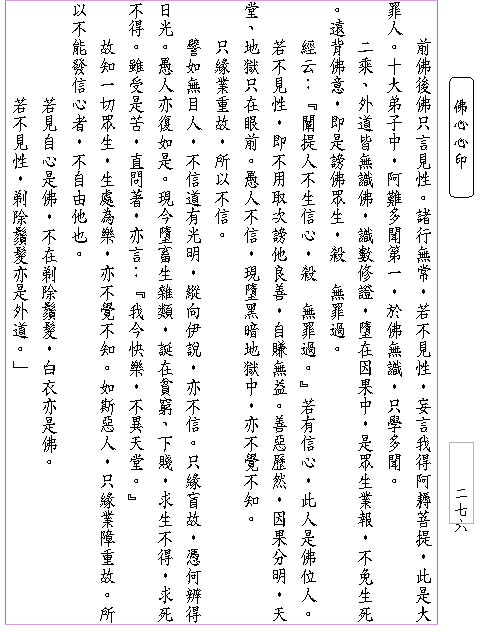 佛心心印
二七六
前佛後佛只言見性。諸行無常，若不見性，妄言我得阿耨菩提，此是大
罪人。十大弟子中，阿難多聞第一，於佛無識，只學多聞。
二乘、外道皆無識佛，識數修證，墮在因果中，是眾生業報，不免生死
。遠背佛意，即是謗佛眾生，殺　無罪過。
經云：『闡提人不生信心，殺　無罪過。』若有信心，此人是佛位人。
若不見性，即不用取次謗他良善，自賺無益。善惡歷然，因果分明，天
堂、地獄只在眼前。愚人不信，現墮黑暗地獄中，亦不覺不知。
只緣業重故，所以不信。
譬如無目人，不信道有光明，縱向伊說，亦不信。只緣盲故，憑何辨得
日光。愚人亦復如是。現今墮畜生雜類，誕在貧窮、下賤，求生不得，求死
不得。雖受是苦，直問著，亦言：『我今快樂，不異天堂。』
故知一切眾生，生處為樂，亦不覺不知。如斯惡人，只緣業障重故。所
以不能發信心者，不自由他也。
若見自心是佛，不在剃除鬚髮，白衣亦是佛。
若不見性，剃除鬚髮亦是外道。」